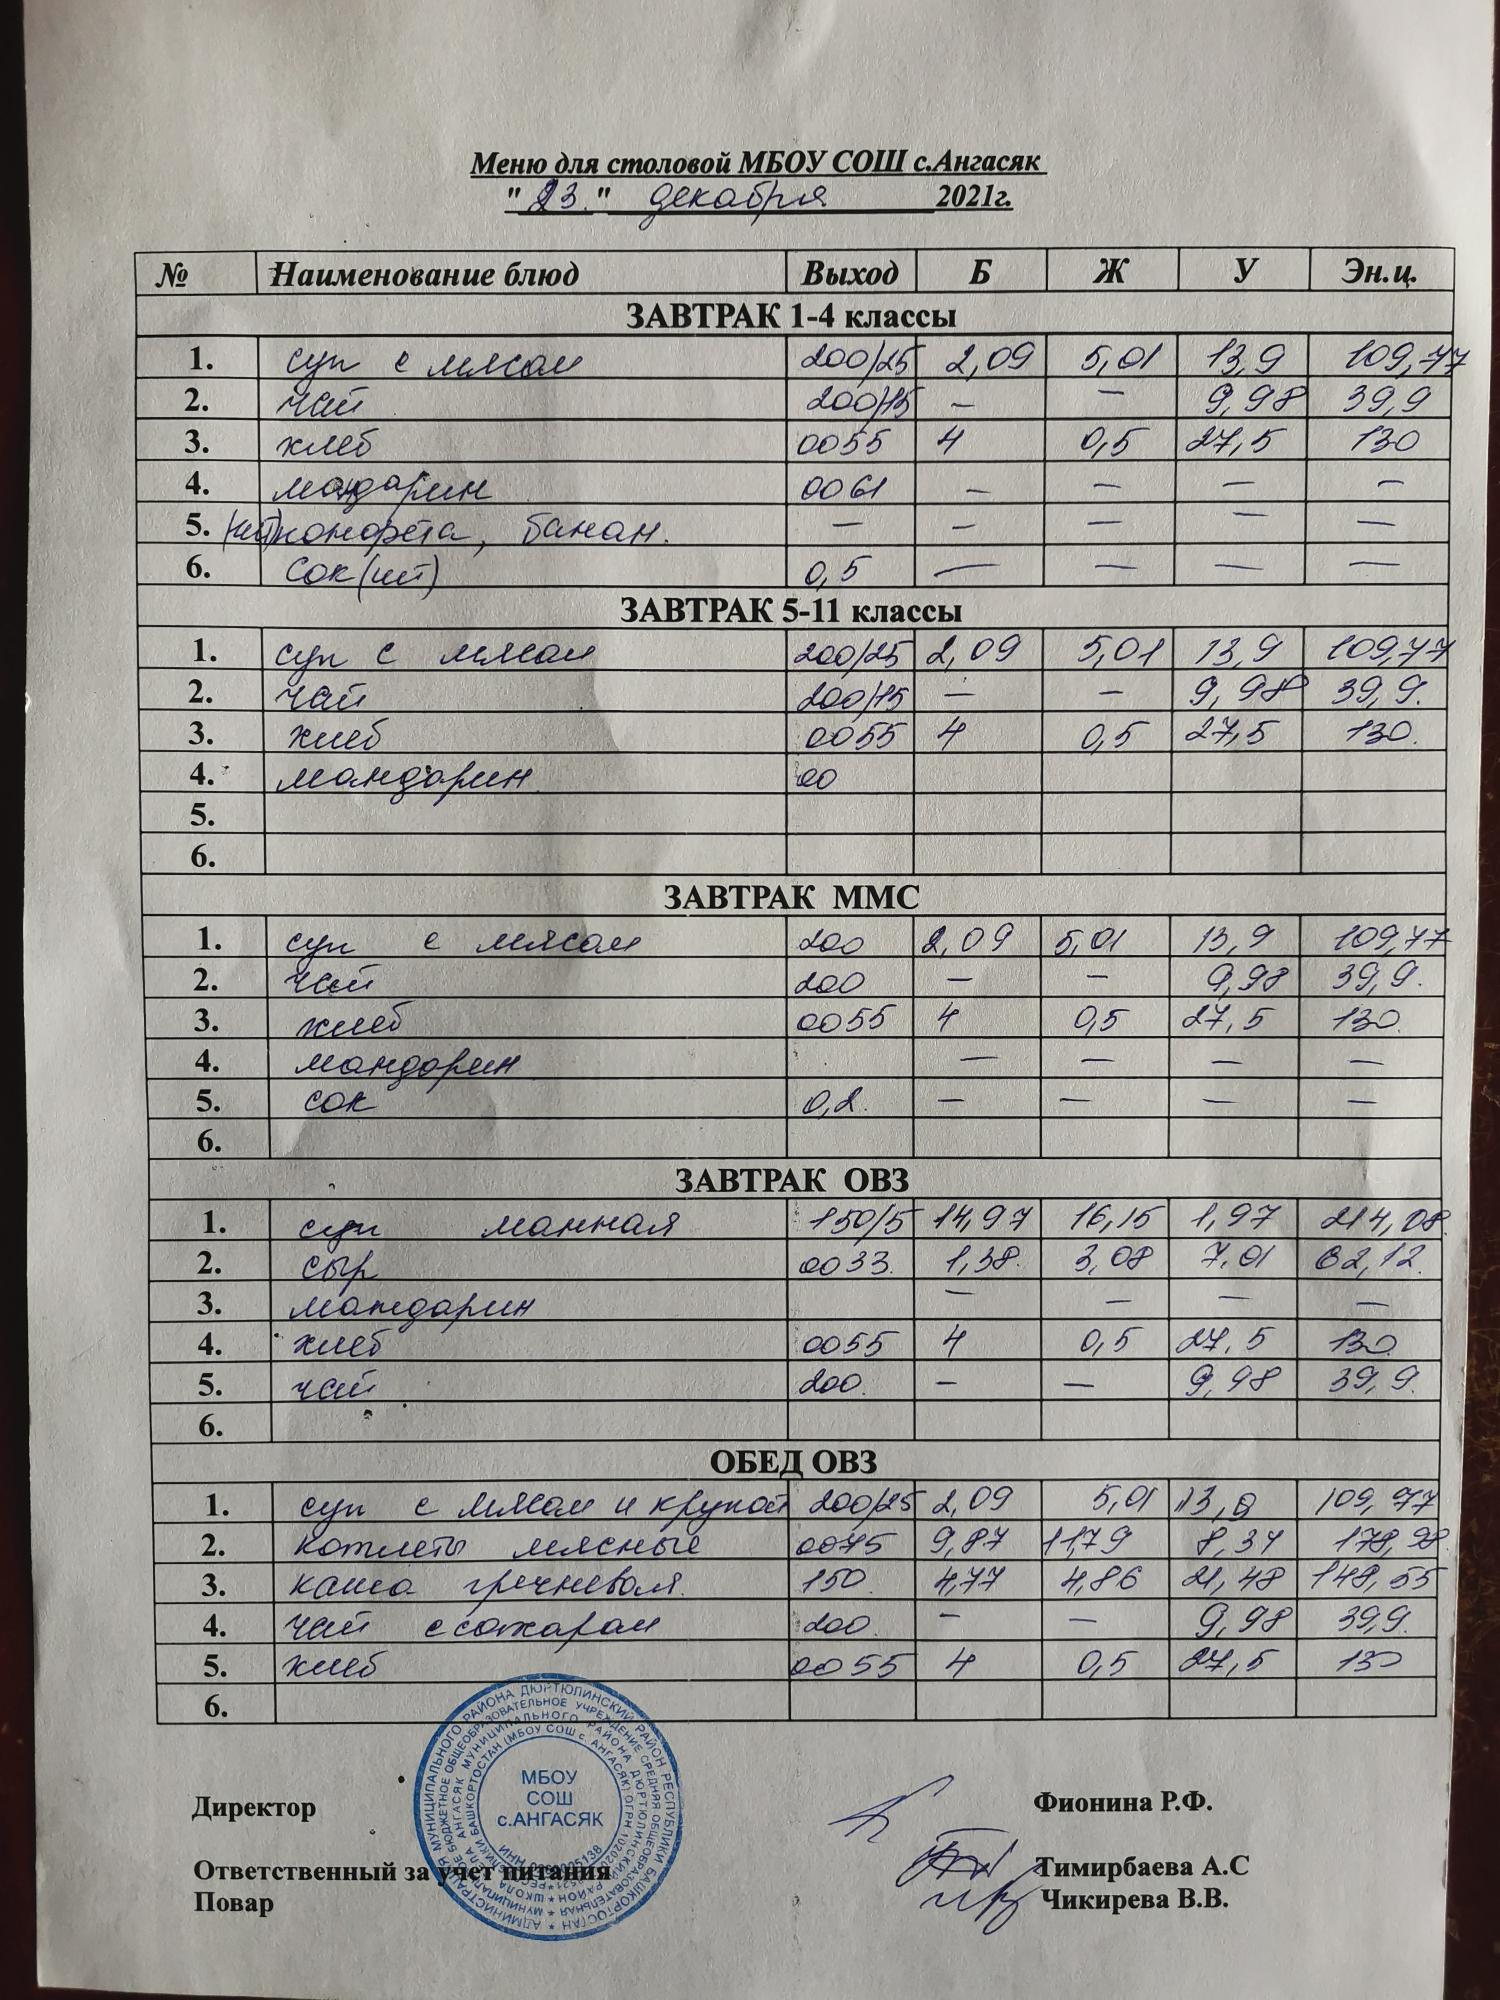 Меню для столовой МБОУ СОШ с.Ангасяк
"23." декабря 2021г.
№ Наименование блюд Выход Б Ж У Эн.ц.
ЗАВТРАК 1-4 классы
1. суп с мясом 200/25 2,09 5,01 13,9 109,77
2. чай 200/15 — — 9,98 39,9
3. хлеб 0055 4 0,5 27,5 130
4. мандарин 0061 — — — —
5. (шт) конфета, банан. — — — — —
6. сок (шт) 0,5 — — — —
ЗАВТРАК 5-11 классы
1. суп с мясом 200/25 2,09 5,01 13,9 109,77
2. чай 200/15 — — 9,98 39,9.
3. хлеб 0055 4 0,5 27,5 130.
4. мандарин 00
5.
6.
ЗАВТРАК ММС
1. суп с мясом 200 2,09 5,01 13,9 109,77
2. чай 200 — — 9,98 39,9.
3. хлеб 0055 4 0,5 27,5 130.
4. мандарин — — — —
5. сок 0,2. — — — —
6.
ЗАВТРАК ОВЗ
1. суп манная 150/5 14,97 16,15 1,97 214,08.
2. сыр 0033. 1,38. 3,08 7,01 62,12.
3. мандарин — — — —
4. хлеб 0055 4 0,5 27,5 130.
5. чай 200. — — 9,98 39,9.
6.
ОБЕД ОВЗ
1. суп с мясом и крупой 200/25 2,09 5,01 13,9 109,77
2. котлеты мясные 0075 9,87 11,79 8,34 178,98.
3. каша гречневая. 150. 4,77 4,86 21,48 148,55
4. чай с сахаром 200. — — 9,98 39,9.
5. хлеб 0055 4 0,5 27,5 130
6.
МБОУ
СОШ
с.АНГАСЯК
Директор Фионина Р.Ф.
Ответственный за учет питания Тимирбаева А.С
Повар Чикирева В.В.